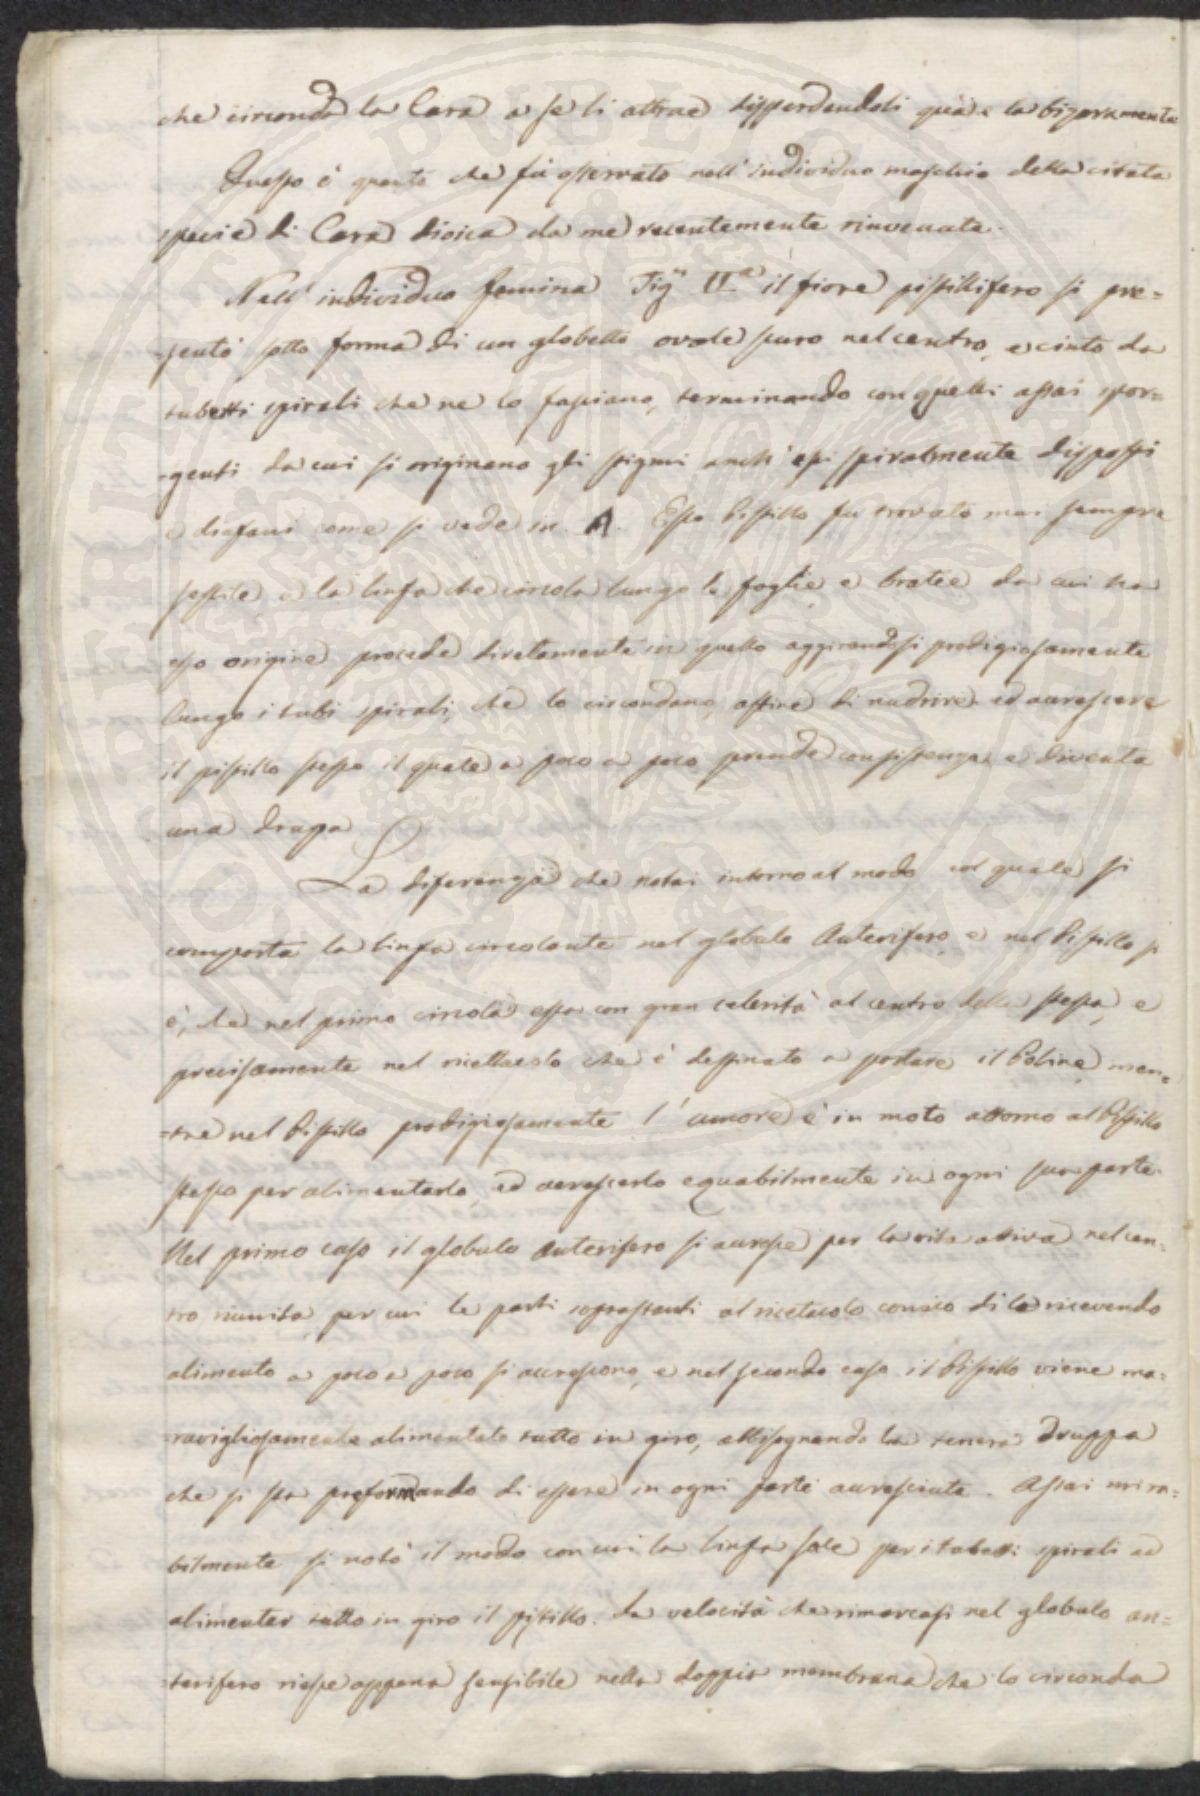 che circonda la Cara a se li attrae disperdendoli quà e la bizaramente
Questo è quanto che fù osservato nell' individuo maschio della citata
specie di Cara dioica da me recentemente rinvenuta.
Nell' individuo femina Figª IIª il fiore pistillifero si pre=
=sentò sotto forma di un globetto ovale puro nel centro, e cinto da
tubetti spirali che ne lo fasciano, terminando con quelli assai spor=
=genti da cui si originano gli stigmi anch' essi spiralmente disposti
e diafani come si vede in A. Esso Pistillo fu trovato mai sempre
sessile, e la linfa che circola lungo le foglie e bratee da cui ha
esso origine procede diretamente in quello aggirandosi prodigiosamente
lungo i tubi spirali, che lo circondano, affine di nudrire ed accrescere
il pistillo stesso il quale a poco a poco prende consistenza e diventa
una drupa
La diferenza che notai intorno al modo col quale si
comporta la linfa circolante nel globulo Anterifero, e nel Pistillo si
è, che nel primo circola essa con gran celerità al centro dello stesso, e
precisamente nel ricettacolo che è destinato a portare il Poline, men=
=tre nel Pistillo prodigiosamente l' umore è in moto attorno al Pistillo
stesso per alimentarlo, ed acrescerlo equabilmente in ogni sua parte.
Nel primo caso il globulo anterifero si accresce per la vita attiva nel cen=
tro riunita, per cui le parti soprastanti al ricetacolo conico di là ricevendo
alimento a poco a poco si accrescono, e nel secondo caso il Pistillo viene ma=
=ravigliosamente alimentato tutto in giro, abbisognando la tenera druppa
che si sta preformando di essere in ogni parte accresciuta. Assai mira=
bilmente si notò il modo con cui la linfa sale per i tubetti spirali ad
alimentar tutto in giro il pistillo. La velocità che rimarcasi nel globulo an=
=terifero riesce appena sensibile nella doppia membrana che lo circonda